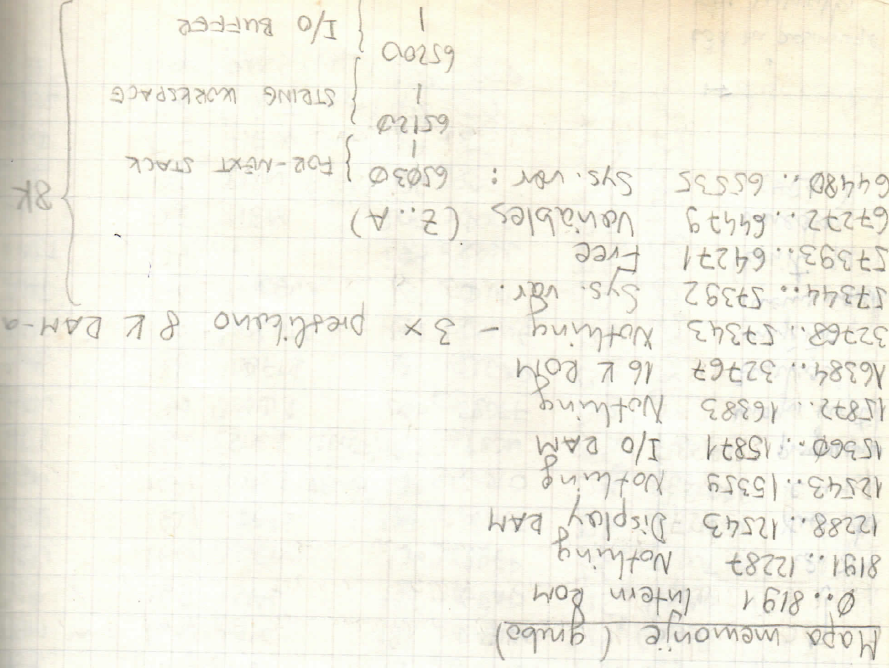 Mapa memorije (grubo)
0..8191 Intern ROM
8191..12287 Nothing
12288..12543 Display RAM
12543..15359 Nothing
15360..15871 I/O RAM
15872..16383 Nothing
16384..32767 16 K ROM
32768..57343 Nothing - 3x preslikano 8 K RAM-a
57344..57392 Sys. var.
57393..64271 Free
67272...64479 Variables (Z..A)
64480..65535 Sys. var: 65030 } FOR-NEXT STACK
65120
} STRING WORKSPACE
65200
} I/O BUFFER
8K